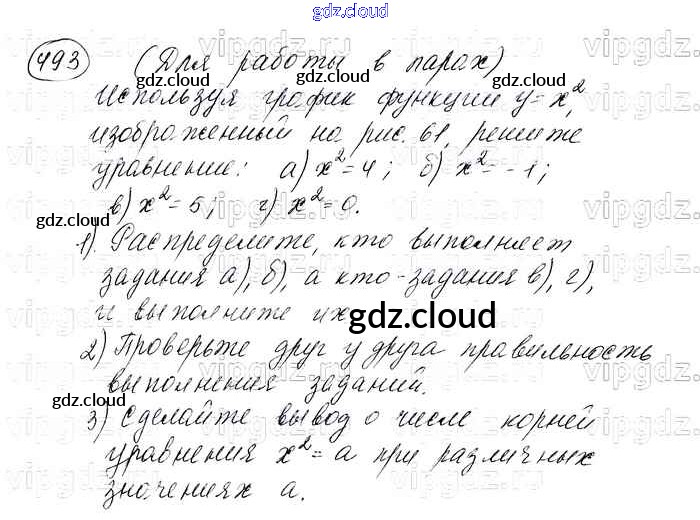 gdz.cloud
493 (Для работы в парах)
Используя график функции y = x²,
изображенный на рис. 61, решите
уравнение: а) x² = 4; б) x² = -1;
в) x² = 5; г) x² = 0.
1) Распределите, кто выполняет
задания а), б), а кто - задания в), г),
и выполните их.
2) Проверьте друг у друга правильность
выполнения заданий.
3) Сделайте вывод о числе корней
уравнения x² = a при различных
значениях a.